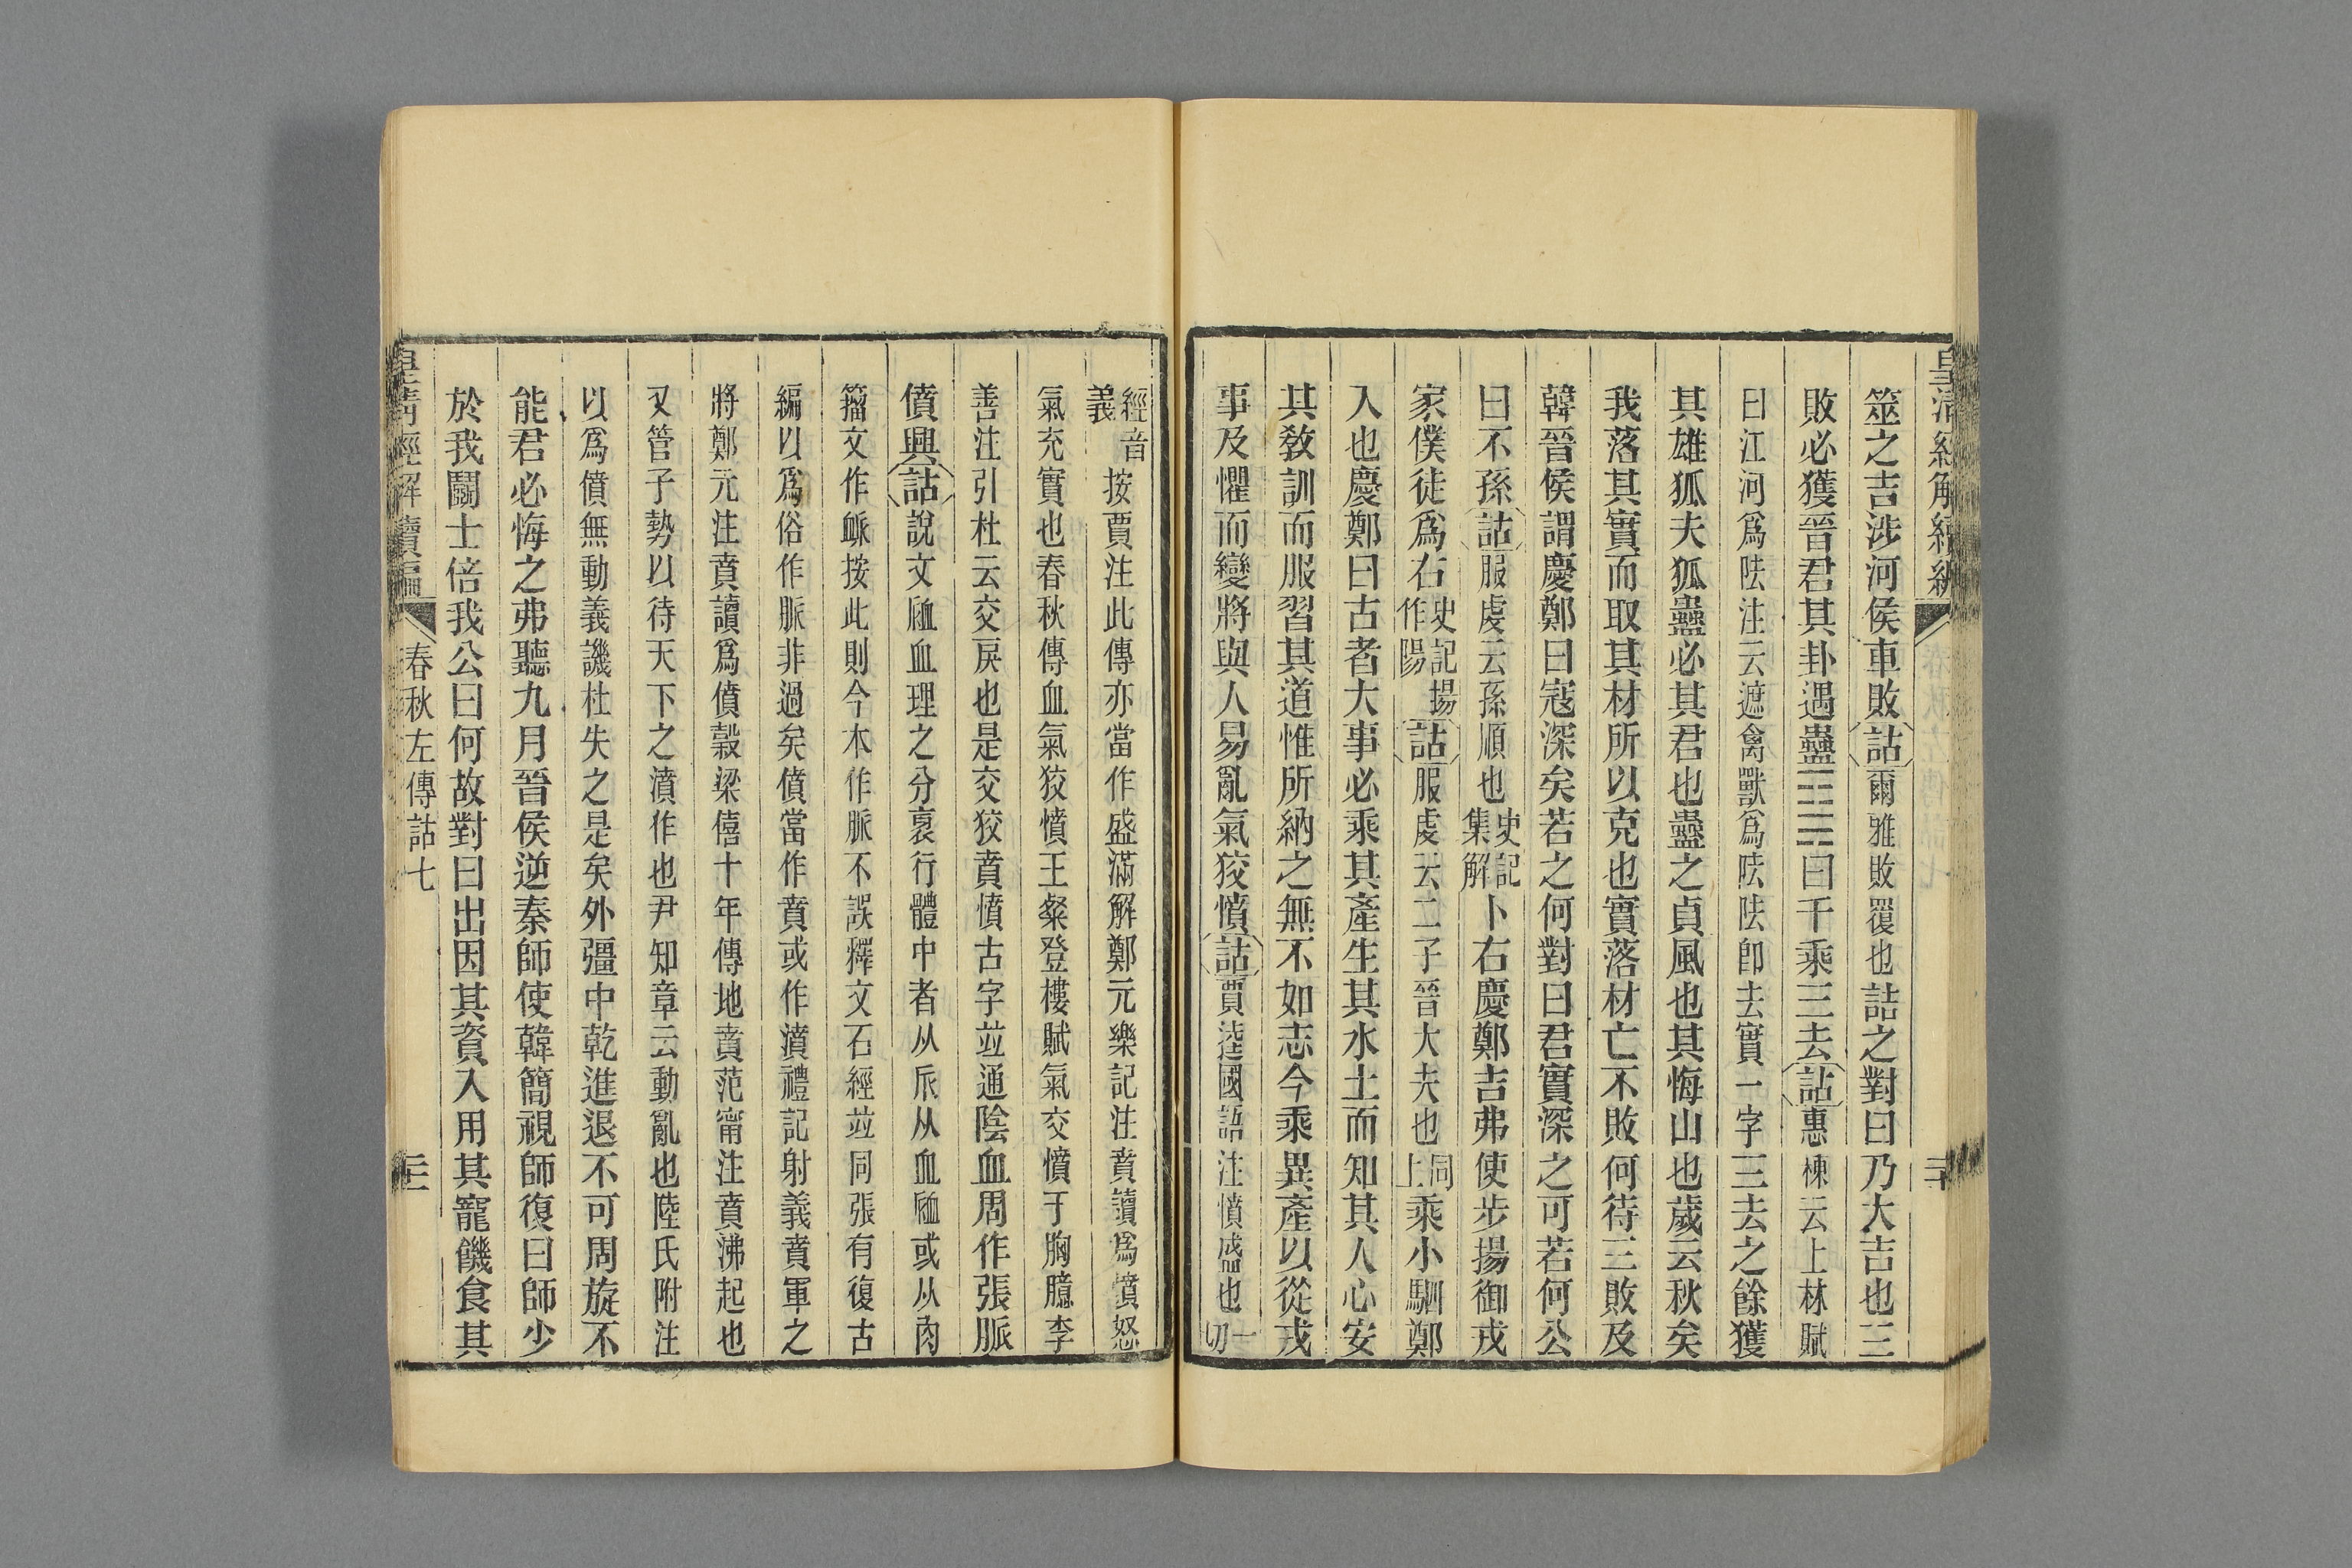 皇清經解續編
春秋左傳詁七
二十
筮之吉涉河侯車敗詁爾雅敗覆也詰之對曰乃大吉也三
敗必獲晉君其卦遇蠱䷑曰千乘三去詁惠棟云上林賦
曰江河爲阹注云遮禽獸爲阹阹卽去實一字三去之餘獲
其雄狐夫狐蠱必其君也蠱之貞風也其悔山也歲云秋矣
我落其實而取其材所以克也實落材亡不敗何待三敗及
韓晉侯謂慶鄭曰寇深矣若之何對曰君實深之可若何公
曰不孫詁服虔云孫順也史記集解卜右慶鄭吉弗使步揚御戎
家僕徒爲右史記揚作陽詁服虔云二子晉大夫也同上乘小駟鄭
入也慶鄭曰古者大事必乘其產生其水土而知其人心安
其敎訓而服習其道惟所納之無不如志今乘異產以從戎
事及懼而變將與人易亂氣狡憤詁賈逵國語注憤盛也一切
經音義按賈注此傳亦當作盛滿解鄭元樂記注賁讀爲憤怒
氣充實也春秋傳血氣狡憤王粲登樓賦氣交憤于胸臆李
善注引杜云交戾也是交狡賁憤古字竝通陰血周作張脈
僨興詁說文𧖴血理之分裹行體中者从𠂢从血𧖴或从肉
籀文作衇按此則今本作脈不誤釋文石經竝同張有復古
編以爲俗作脈非過矣僨當作賁或作濆禮記射義賁軍之
將鄭元注賁讀爲僨榖梁僖十年傳地賁范甯注賁沸起也
又管子勢以待天下之濆作也尹知章云動亂也陸氏附注
以爲僨無動義譏杜失之是矣外彊中乾進退不可周旋不
能君必悔之弗聽九月晉侯逆秦師使韓簡視師復曰師少
於我鬭士倍我公曰何故對曰出因其資入用其寵饑食其
皇清經解續編
春秋左傳詁七
二十一